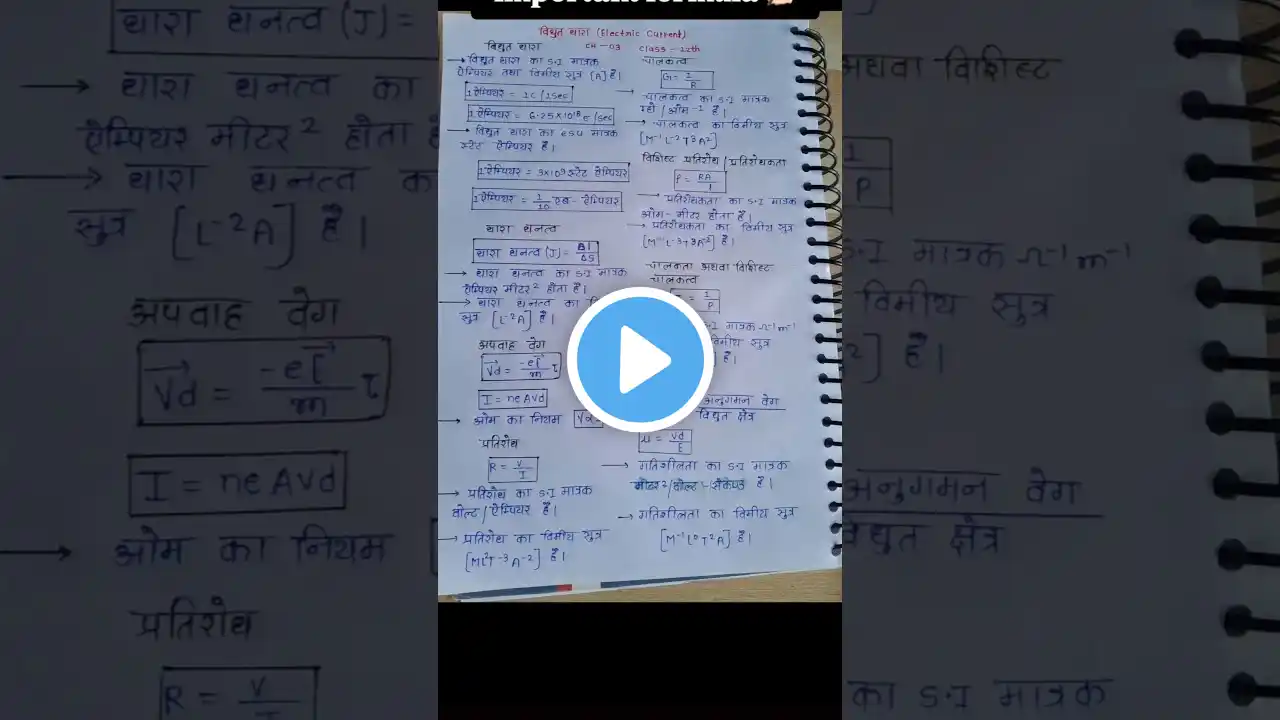 important formula
विद्युत धारा (Electric Current)
CH-03 Class-12th
विद्युत धारा
→ विद्युत धारा का S.I मात्रक
ऐम्पियर तथा विमीय सूत्र [A] है।
1 ऐम्पियर = 1C/1Sec
1 ऐम्पियर = 6.25×10¹⁸ e/sec
→ विद्युत धारा का esu मात्रक
स्टेट ऐम्पियर है।
1 ऐम्पियर = 3×10⁹ स्टेट ऐम्पियर
1 ऐम्पियर = 1/10 एब-ऐम्पियर
धारा घनत्व
धारा घनत्व (J) = ΔI/ΔS
→ धारा घनत्व का S.I मात्रक
ऐम्पियर मीटर² होता है।
→ धारा घनत्व का
सूत्र [L⁻²A] है।
अपवाह वेग
Vd = -eE/m τ
I = neAVd
→ ओम का नियम V∝
प्रतिरोध
R = V/I
→ प्रतिरोध का S.I मात्रक
वोल्ट/ऐम्पियर है।
→ प्रतिरोध का विमीय सूत्र
[ML²T⁻³A⁻²] है।
चालकत्व
G = 1/R
→ चालकत्व का S.I मात्रक
म्हो/ओम⁻¹ है।
→ चालकत्व का विमीय सूत्र
[M⁻¹L⁻²T³A²]
विशिष्ट प्रतिरोध/प्रतिरोधकता
ρ = RA/l
→ प्रतिरोधकता का S.I मात्रक
ओम-मीटर होता है।
→ प्रतिरोधकता का विमीय सूत्र
है।
चालकता अथवा विशिष्ट
चालकत्व
= 1/ρ
S.I मात्रक Ω⁻¹m⁻¹
विमीय सूत्र
है।
अनुगमन वेग
विद्युत क्षेत्र
μ = Vd/E
→ गतिशीलता का S.I मात्रक
मीटर²/वोल्ट-सेकेण्ड है।
→ गतिशीलता का विमीय सूत्र
[M⁻¹L⁰T²A] है।